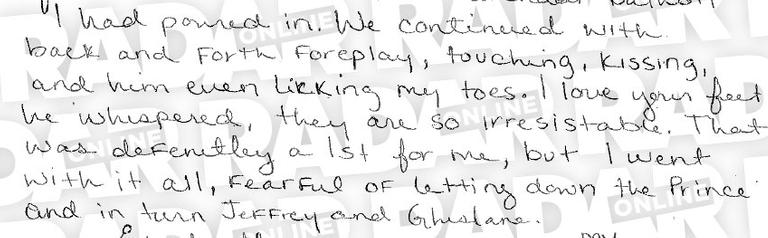 "I had poured in. We continued with
back and forth foreplay, touching, kissing,
and him even licking my toes. I love your feet
he whispered, they are so irresistable. That
was defenetley a 1st for me, but I went
with it all, fearful of letting down the Prince
and in turn Jeffrey and Ghislane.
RADAR ONLINE